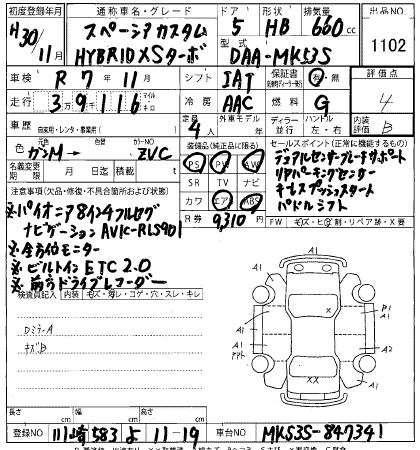 初度登録年月 通称車名・グレード ドア 形状 排気量 出品NO
H30/11月 スペーシアカスタム HYBRID XSターボ 5 HB 660cc 1102
型式 DAA-MK53S
車検 R7年11月 シフト IAT 保証書 有・無 評価点
走行 39,116 マイル キロ 冷房 AAC 燃料 G 4
車歴 自家用・レンタ・事業用( ) 定員 4人 外車モデル 年 ディーラー 並行 ハンドル 左・右 内装評価 B
色 ガンM→ 色替 カラーNO ZVC
装備品(純正品に限る)
PS PW AW
SR TV ナビ
カワ エア ABS
名義変更期限 月 日 積載 t
R券 9,310円
セールスポイント(正常に機能するもの)
デュアルセンサーブレーキサポート
リヤパーキングセンサー
キーレスプッシュスタート
パドルシフト
注意事項(欠品・修復・不具合箇所及び改造車等)
※パイオニア8インチフルセグ
ナビゲーション AVIC-RL5901
※全方位モニター
※ビルトインETC2.0
※前方ドライブレコーダー
FW キズ・ヒビ割・リペア跡・X要
検査員記入 内装 キズ・汚レ・コゲ・穴・スレ・キレ
DミラーA
キズB
A1 A1 A1 A1 PPト A1 X XX P1 A1 A2 A1
長さ cm 幅 cm 高さ cm
登録NO 川崎 583 よ 11-19 車台NO MK53S-847341